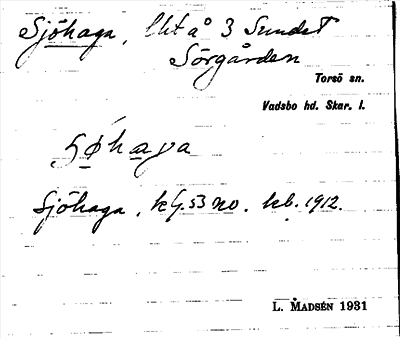 Sjöhaga, lht å 3 Sundet
Sörgården
Torsö sn.
Vadsbo hd. Skar. l.
Sjöhaga, kG. 53 no. kb. 1912.
L. MADSÉN 1931